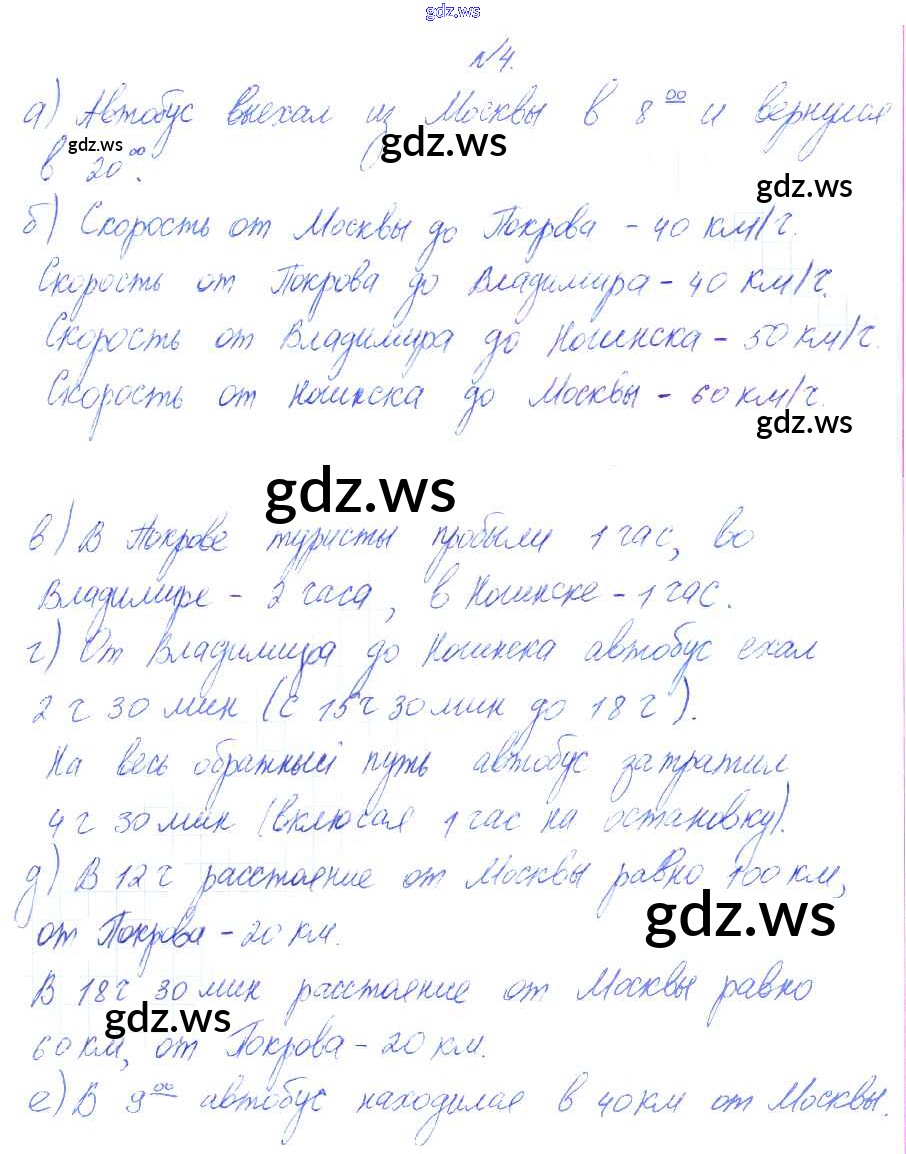 gdz.ws
№4.
а) Автобус выехал из Москвы в 8 00 и вернулся
gdz.ws
gdz.ws
в 20 00.
gdz.ws
б) Скорость от Москвы до Покрова - 40 км/ч.
Скорость от Покрова до Владимира - 40 км/ч.
Скорость от Владимира до Ногинска - 50 км/ч.
Скорость от Ногинска до Москвы - 60 км/ч.
gdz.ws
gdz.ws
в) В Покрове туристы пробыли 1 час, во
Владимире - 2 часа, в Ногинске - 1 час.
г) От Владимира до Ногинска автобус ехал
2 ч 30 мин (с 15 ч 30 мин до 18 ч).
На весь обратный путь автобус затратил
4 ч 30 мин (включая 1 час на остановку).
д) В 12 ч расстояние от Москвы равно 100 км,
gdz.ws
от Покрова - 20 км.
В 18 ч 30 мин расстояние от Москвы равно
gdz.ws
60 км, от Покрова - 20 км.
е) В 9 00 автобус находился в 40 км от Москвы.